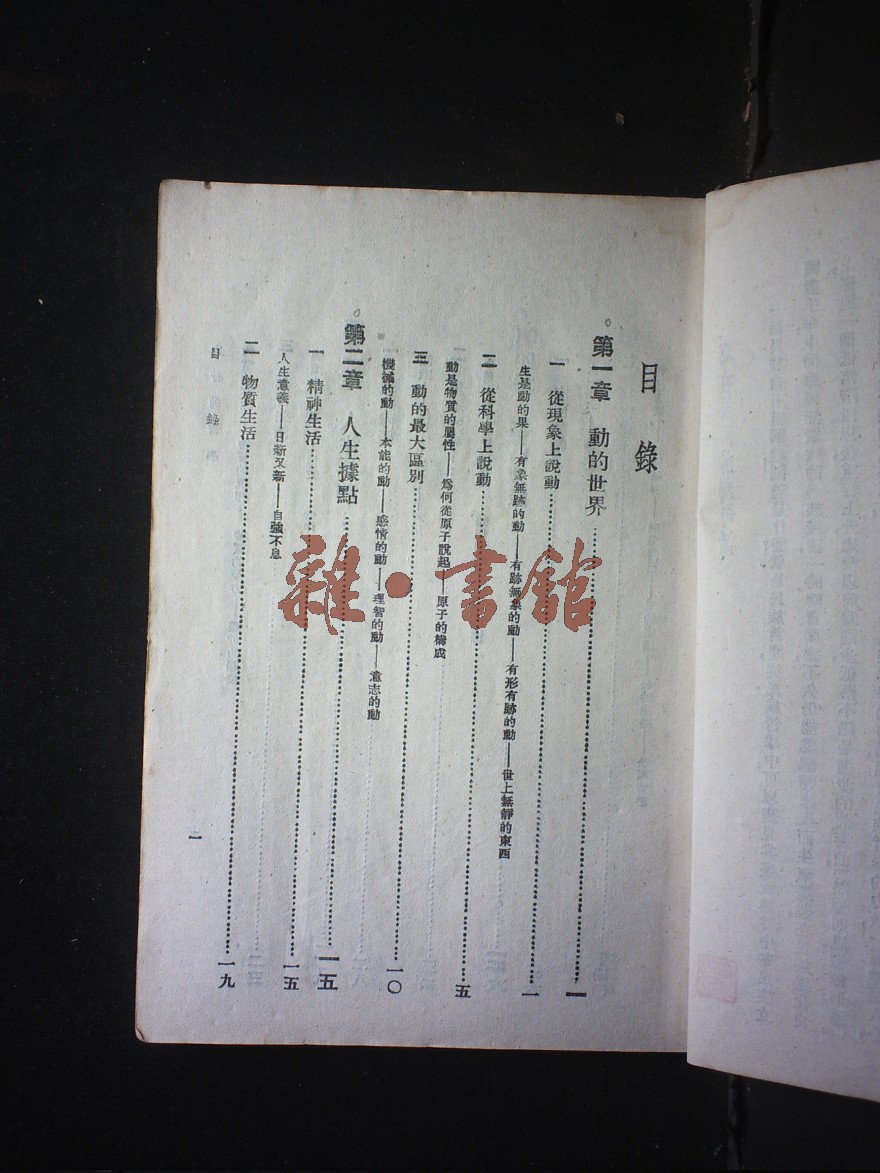 目錄
第一章 動的世界……一
一 從現象上說動……一
生是動的果——有象無跡的動——有跡無象的動——有形有跡的動——世上無靜的東西
二 從科學上說動……五
動是物質的屬性——爲何從原子說起——原子的構成
三 動的最大區別……一〇
機械的動——本能的動——感情的動——理智的動——意志的動
第二章 人生據點……一五
一 精神生活……一五
人生意義——日新又新——自強不息
二 物質生活……一九
目錄
一
雜·書館